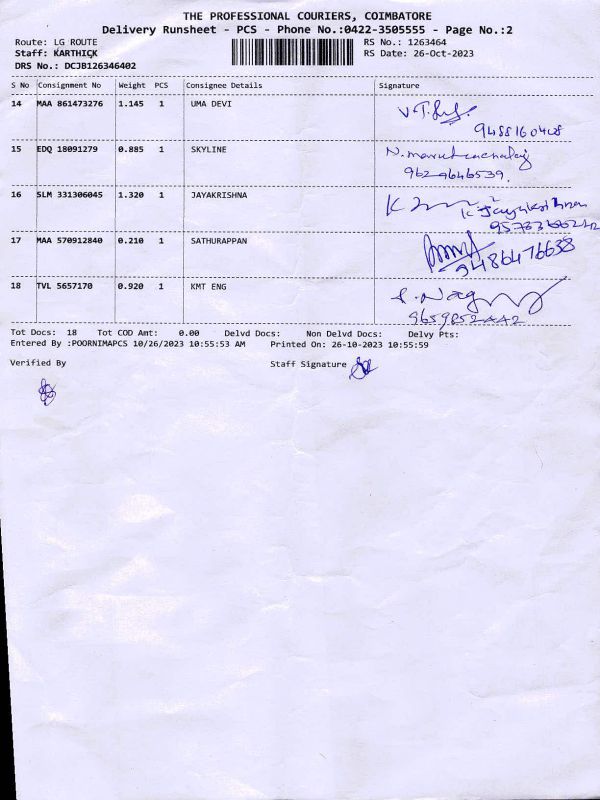 THE PROFESSIONAL COURIERS, COIMBATORE
Delivery Runsheet - PCS - Phone No.:0422-3505555 - Page No.:2
Route: LG ROUTE RS No.: 1263464
Staff: KARTHICK RS Date: 26-Oct-2023
DRS No.: DCJB126346402
S No Consignment No Weight PCS Consignee Details Signature
14 MAA 861473276 1.145 1 UMA DEVI
9488160408
15 EDQ 18091279 0.885 1 SKYLINE
9629646539.
16 SLM 331306045 1.320 1 JAYAKRISHNA
17 MAA 570912840 0.210 1 SATHURAPPAN
9486476638
18 TVL 5657170 0.920 1 KMT ENG
Tot Docs: 18 Tot COD Amt: 0.00 Delvd Docs: Non Delvd Docs: Delvy Pts:
Entered By :POORNIMAPCS 10/26/2023 10:55:53 AM Printed On: 26-10-2023 10:55:59
Verified By Staff Signature